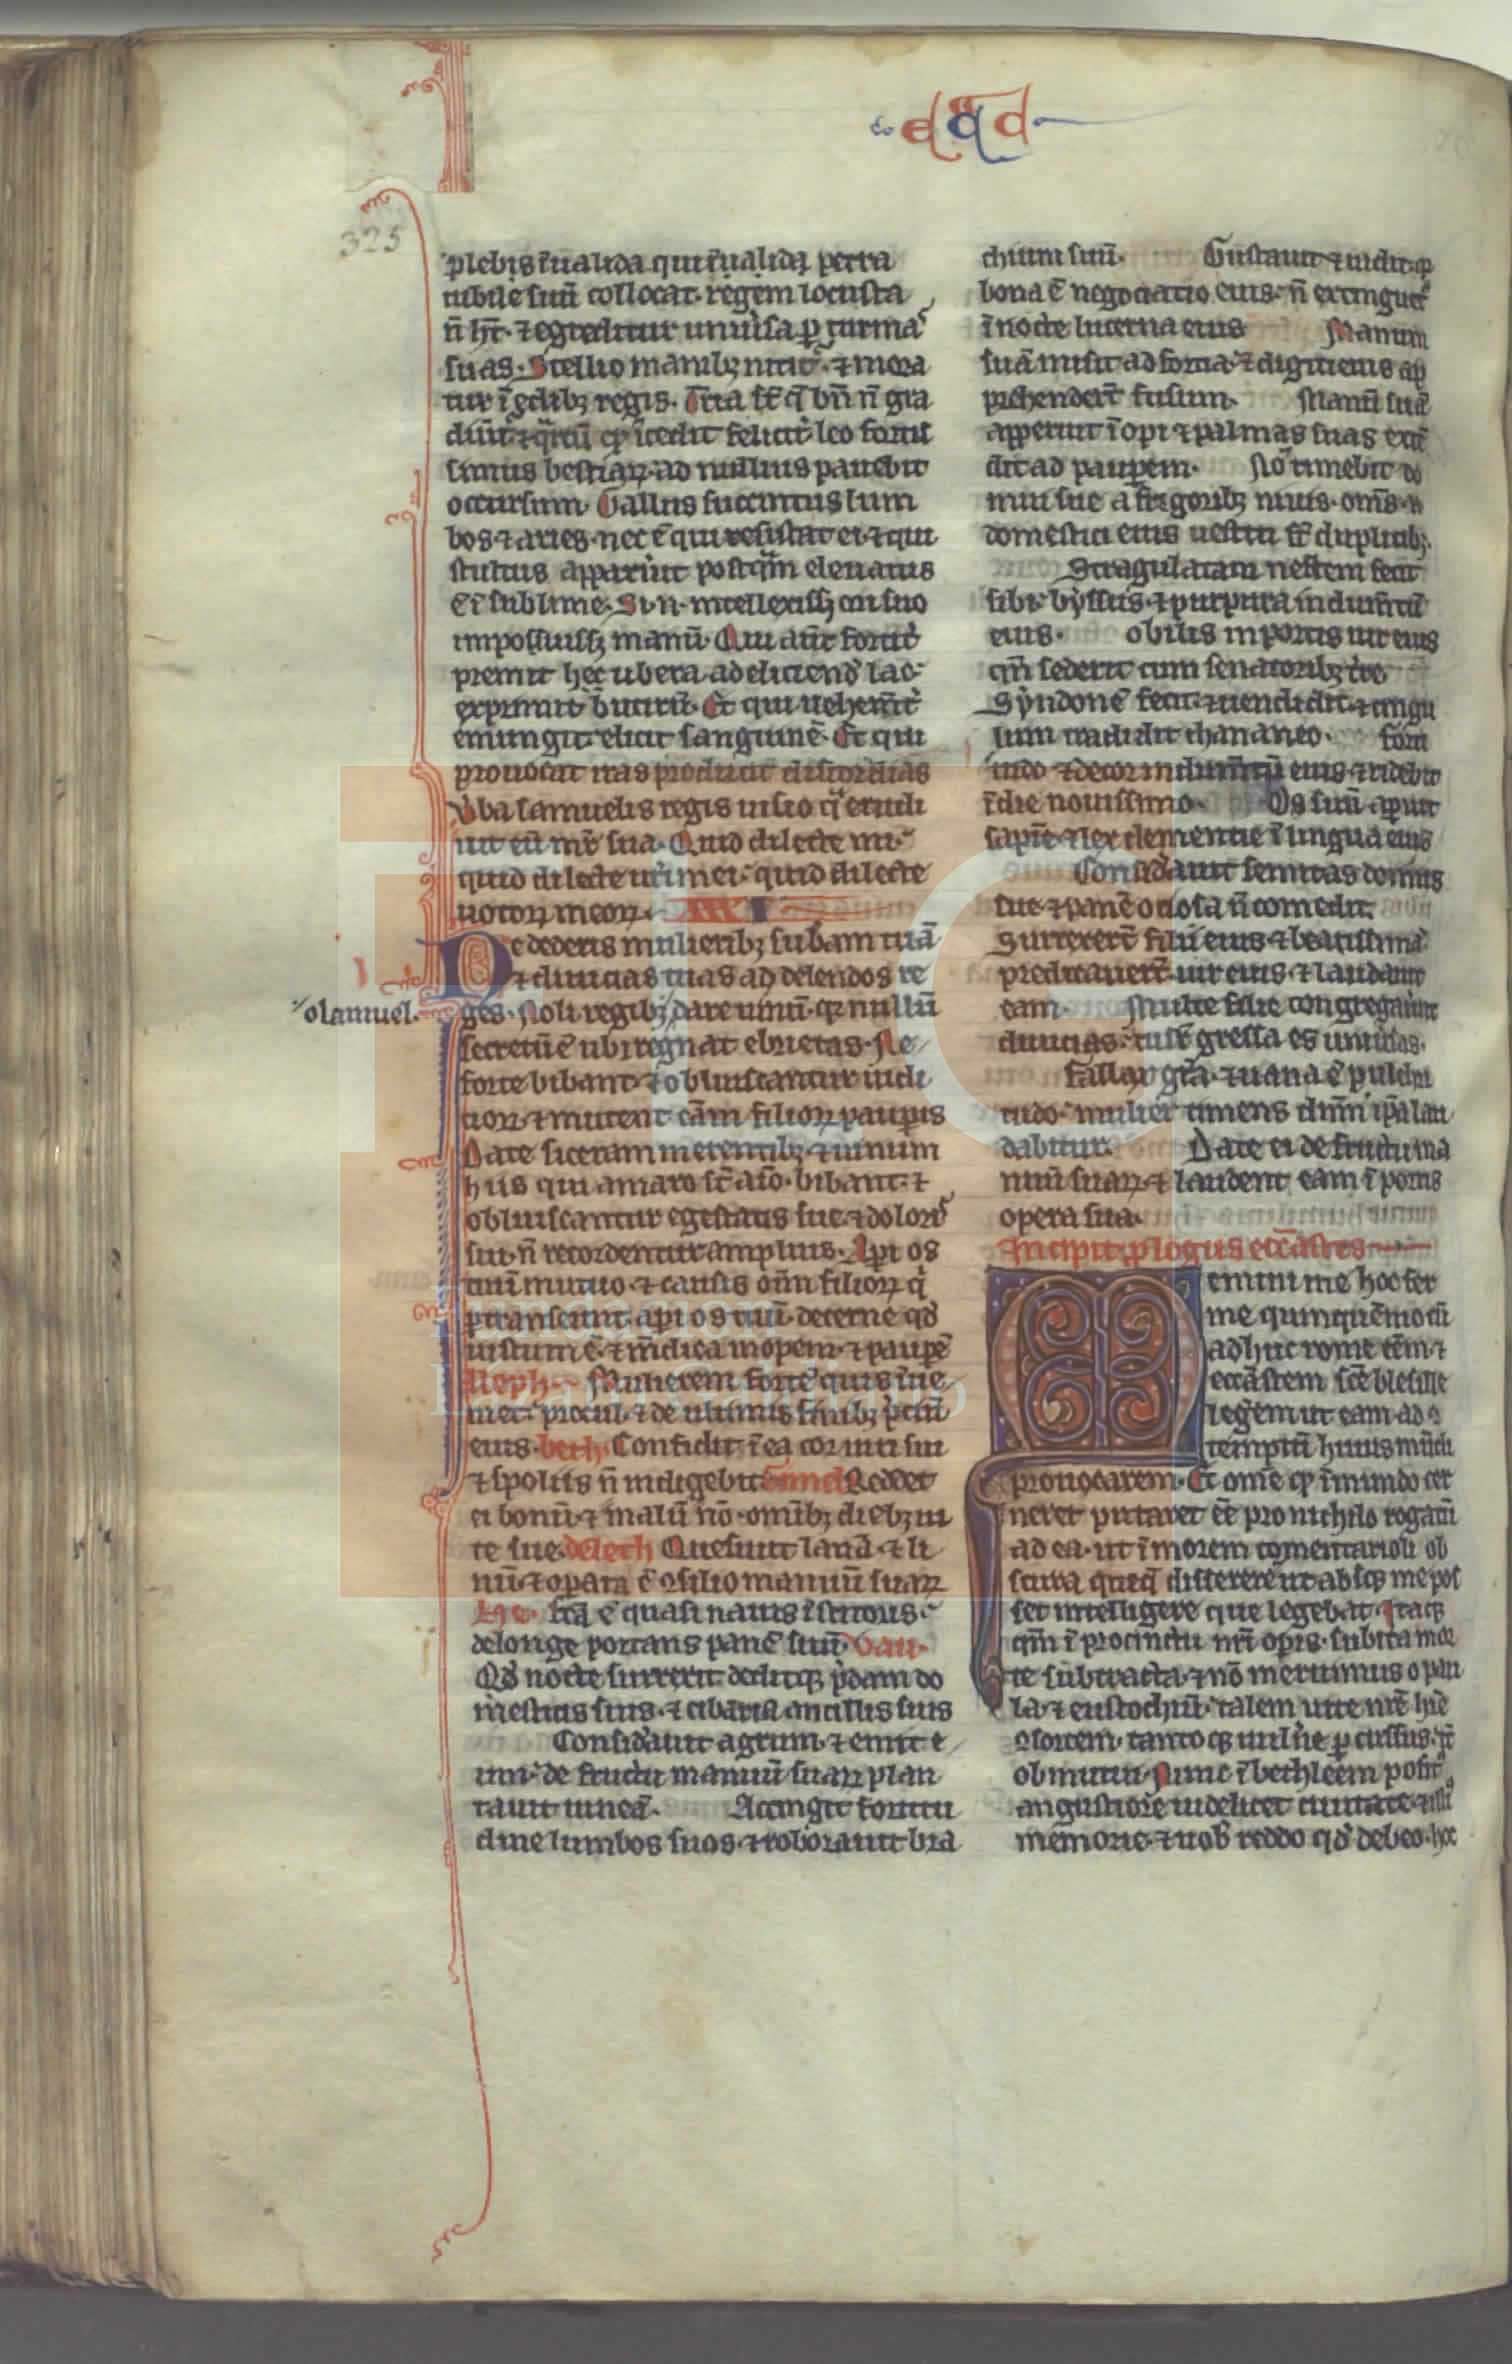 eccłs
325
plebs īualida qui īualidꝫ petra
cubile suū collocat. regem locusta
n̄ ht̄. ⁊ egreditur uniu̾sa ꝑ turma᷒
suas. Stellio manibꝫ nitit᷑. ⁊ mora
tur ī edibꝫ regis. T̾ria st̄ q̄ bn̄ n̄ gra
diūt. ⁊ q̈rtū qꝫ īcedit felicit̾. leo fortis
simus bestiaꝝ. ad nullius pauebit
occursum. Gallus succintus lum
bos. ⁊ aries. nec ē qui resistat ei. ⁊ qui
stultus apparuit postq̄m eleuatus
ē ī sublime. Si. n. intellexissꝫ ori suo
imposuissꝫ manū. Qui aūt fortit̾
premit hec ubera. ad eliciend̾ lac.
exprimit butirū. Et qui uehem̄t̾
emungit elicit sanguinē. Et qui
prouocat iras producit discordias
V̾ba lamuelis regis uisio q̈ erudi
uit eū mr̄ sua. Quid dilecte mi.
quid dilecte ut̾i mei. quid dilecte
uotoꝝ meoꝝ. XXXI
Ne dederis mulieribꝫ subam tuā
⁊ diuicias tuas ad delendos re
o lamuel.
ges. Noli regibꝫ dare uinū. qꝛ nullū
secretū ē ubi regnat ebrietas. Ne
forte bibant. ⁊ obliuiscantur iudi
cioꝝ. ⁊ mutent cām filioꝝ pauperis
Date siceram merentibꝫ. ⁊ uinum
hiis qui amaro st̄ aīo. bibant. ⁊
obliuiscantur egestatis sue. ⁊ dolor᷒
sui. n̄ recordentur amplius. Aꝑi os
tuū mutuo. ⁊ causis oīm filioꝝ q̇
ꝑtranseunt. aꝑi os tuū. decerne qd̾
iustum ē. ⁊ iudica inopem. ⁊ pauꝑē
Aleph. Mulierem fortē quis īue
niet. procul. ⁊ de ultimis finibꝫ p̾ciū
eius. beth. Confidit ī ea cor uiri sui
⁊ spoliis n̄ indigebit. Gimel. Reddet
ei bonū. ⁊ malū nō. omībꝫ diebꝫ ui
te sue. deleth Quesiuit lanā. ⁊ li
nū. ⁊ oꝑata ē ꝯsilio manuū suaꝝ
He. Fc̄a ē quasi nauis īstitoris.
de longe portans panē suū. Vau.
De nocte surrexit. deditqꝫ p̾dam do
mesticis suis. ⁊ cibaria ancillis suis
Consid̾auit agrum. ⁊ emit e
um. de fructu manuū suaꝝ plan
tauit uineā. Accingit fortitu
dine lumbos suos. ⁊ roborauit bra
chium suū. Gustauit ⁊ uidit. qꝫ
bona ē negociatio eius. n̄ extinguet᷑
ī nocte lucerna eius Manum
suā misit ad forcia. ⁊ digiti eius ap
prehender̄t fusum. Manū suā
apperuit īopi ⁊ palmas suas extē
dit ad pauꝑem. Nō timebit do
mui sue a frigoribꝫ niuis. om̄s. n
domestici eius uestiti st̄ duplicibꝫ.
Stragulatam uestem fecit
sibi. byssus. ⁊ purpura indum̄tū
eius. obilis in portis uir eius
qn̄ sederit cum senatoribꝫ t̾re
Syndonē fecit. ⁊ uendidit. ⁊ cingu
lum tradidit chananeo. forti
tudo ⁊ decor indum̄tū eius. ⁊ ridebit
ī die nouissimo. Os suū aꝑuit
sapiē. ⁊ lex clementie ī lingua eius
Consid̾auit semitas domus
sue ⁊ panē ociosa n̄ comedit.
Surrexer̄t filii eius. ⁊ beatissimā
predicauer̄t. uir eius. ⁊ laudauit
eam. Multe filie congregauer̄t
diuicias. tu suꝑgressa es uniu̾sas.
Fallax gr̄a. ⁊ uana ē pulchri
tudo. mulier timens dn̄m ip̄a lau
dabitur. Date ei de fructu ma
nuū suaꝝ. ⁊ laudent eam ī portis
opera sua.
Incipit ꝓlogus ecc̄astes
Memini me hoc fer
me quinquēnio cū
adhuc rome eēm ⁊
ecc̄astem sc̄e blesille
legerem ut eam ad ꝯ
temptū huius mūdi
prouocarem. Et omē qꝫ ī mundo cer
neret putaret eē pro nichilo rogatū
ad ea. ut ī morem comentarioli ob
scura queqꝫ dissererē ut absqꝫ me pos
set intelligere que legebat. Itaqꝫ
qm̄ ī procinctu nr̄i opis. subita mor
te subtracta. ⁊ nō meruimus o pau
la. ⁊ eustochiū. talem uite nr̄e hr̄e
ꝯsortem. tantoqꝫ uuln̾e ꝑcussus. t̄c
obmutui. Nunc ī bethleem posit᷒
angustiore uidelicet ciuitate. ⁊ illi᷒
memorie. ⁊ uob̾ reddo qd̾ debeo. hoc
FLG
Fundación
Lázaro Galdiano